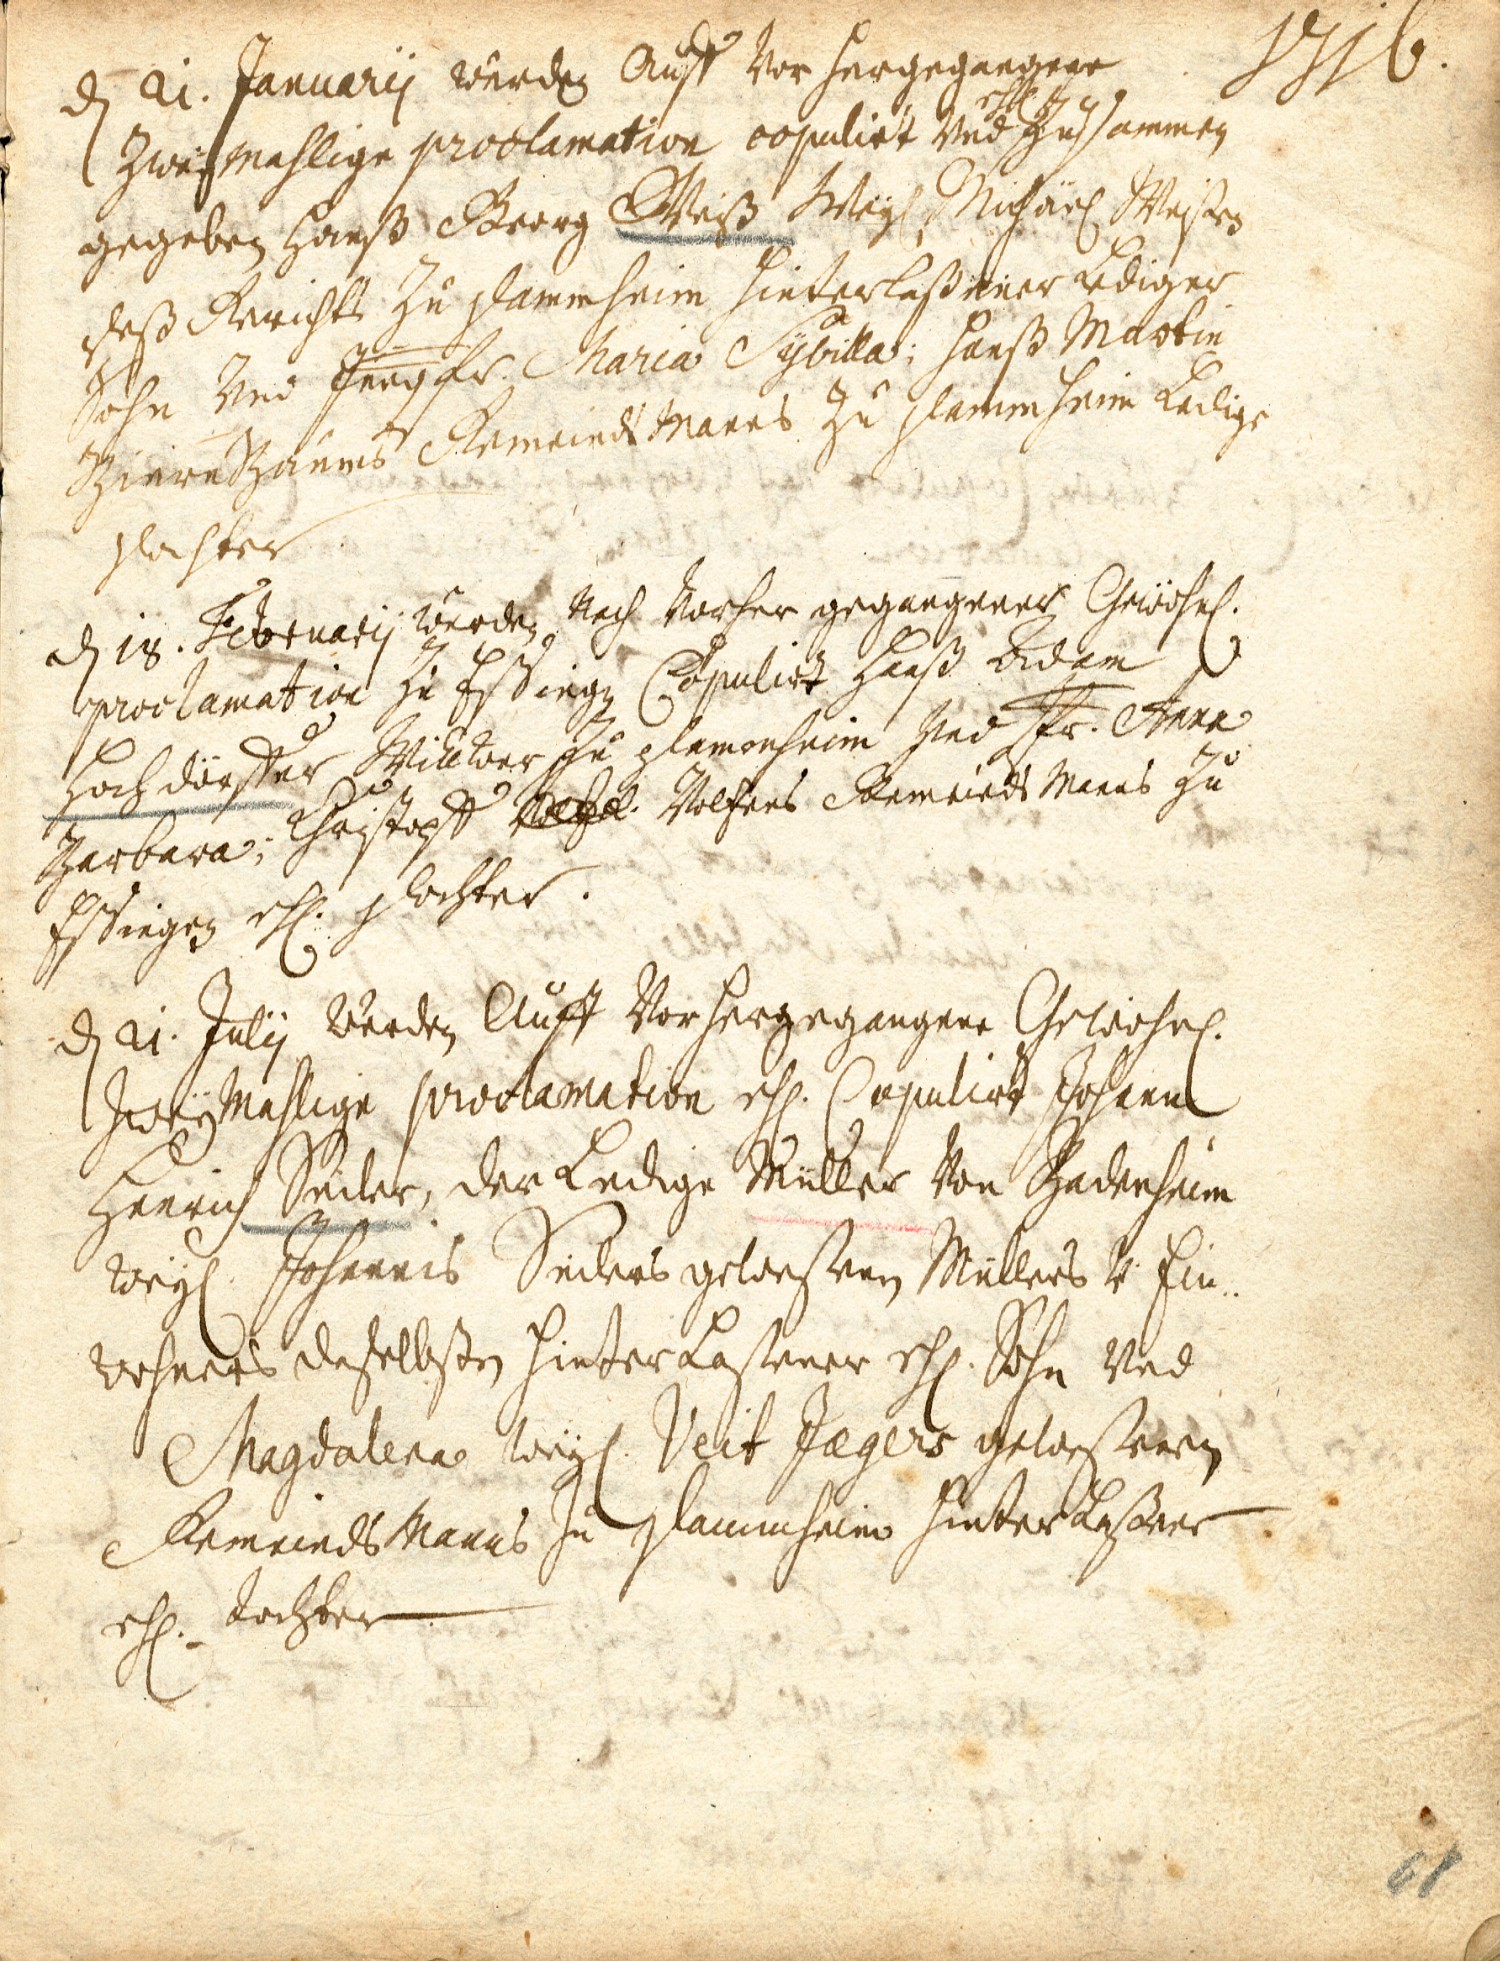 1716.
d 21. Januarij werden Auff vorhergegangene
Zweÿmahlige proclamation copulirt und ehl. Zusammen
gegeben Hanß Georg Weiß Weÿl. Michäel Weisen
deß Gerichts Zu Dammheim hinterlaßener Lediger
Sohn und Jungfr. Maria Sÿbilla; Hanß Martin
Birnbaums Gemeindsmanns Zu Dammheim Ledige
Dochter
d 18. Februarij werden nach vorher gegangener Gewöhnl.
proclamation Zu Essingen Copulirt Hanß Adam
Hochdörffer Wittwer Zu Dammheim und Jfr. Anna
Barbara; Christoff Volfens Gemeinds Manns Zu
Essingen ehl. Dochter.
d 21. Julij werden Auff Vorhergegangene Gewöhnl.
Zweÿmahlige proclamation ehl. Copulirt Johann
Henrich Seiler, der Ledige Müller von Badenheim
weÿl. Johannis Seilers gewesenen Müllers v. Ein..
wohners daselbsten hinterLasener ehl. Sohn und
Magdalena weÿl. Veit Jægers gewesenen
Gemeinds Manns Zu Dammheim hinterLaßene
ehl. Tochter
68